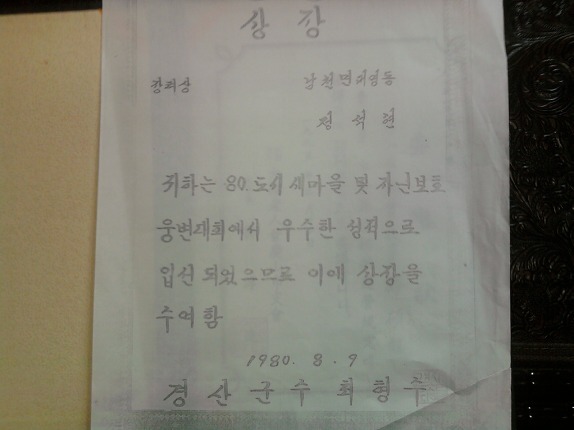 상장
장려상 남천면 대명동
정석현
귀하는 80. 도시새마을 및 자연보호
웅변대회에서 우수한 성적으로
입선 되었으므로 이에 상장을
수여함
1980. 8. 9
경산군수 최형주